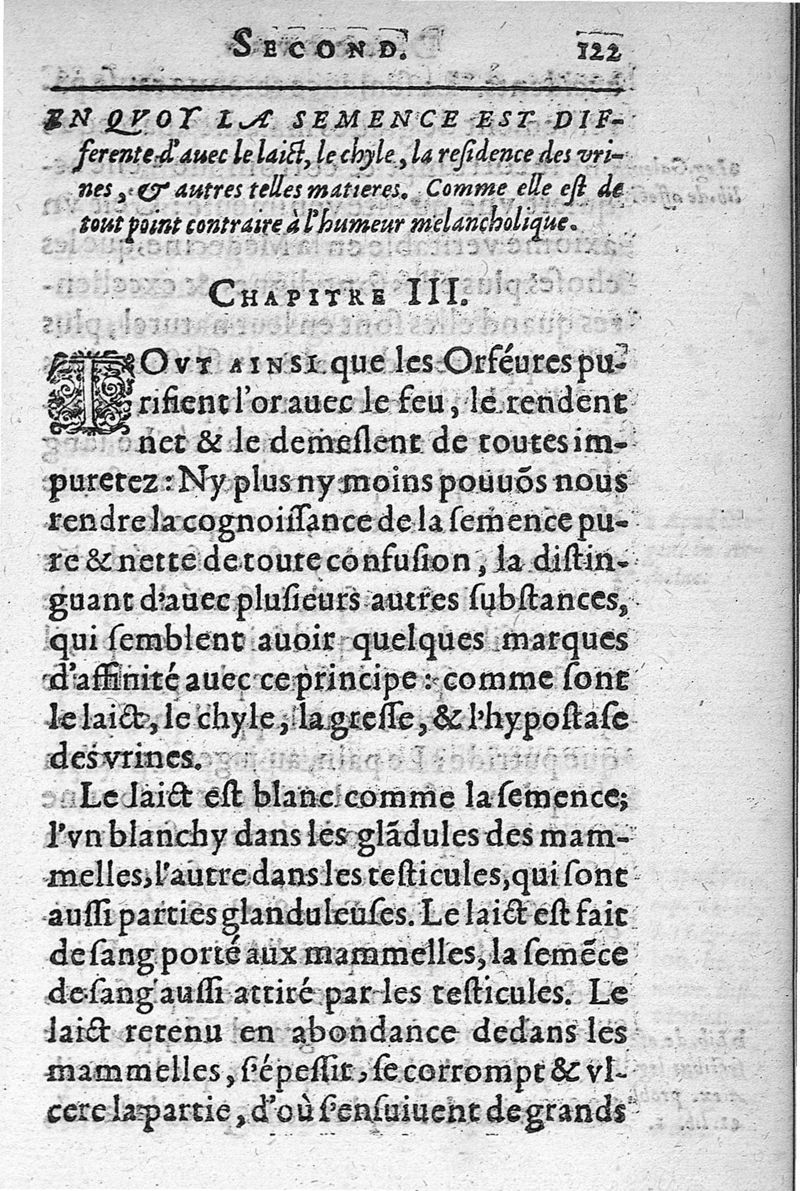 SECOND. 122
EN QVOY LA SEMENCE EST DIF-
ferente d'auec le laict, le chyle, la residence des vri-
nes, & autres telles matieres. Comme elle est de
tout point contraire à l'humeur melancholique.
CHAPITRE III.
TOVT AINSI que les Orféures pu-
rifient l'or auec le feu, le rendent
net & le demeslent de toutes im-
puretez: Ny plus ny moins pouuõs nous
rendre la cognoissance de la semence pu-
re & nette de toute confusion, la distin-
guant d'auec plusieurs autres substances,
qui semblent auoir quelques marques
d'affinité auec ce principe: comme sont
le laict, le chyle, la gresse, & l'hypostase
des vrines.
Le laict est blanc comme la semence;
l'vn blanchy dans les glãdules des mam-
melles, l'autre dans les testicules, qui sont
aussi parties glanduleuses. Le laict est fait
de sang porté aux mammelles, la semẽce
de sang aussi attiré par les testicules. Le
laict retenu en abondance dedans les
mammelles, s'épessit, se corrompt & vl-
cere la partie, d'où s'ensuiuent de grands